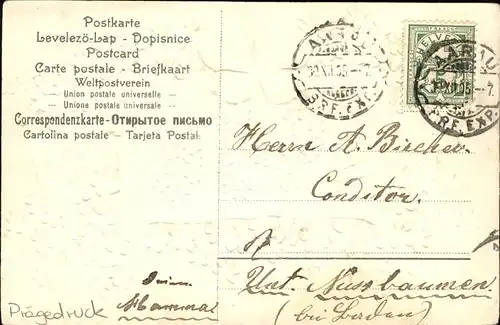 Postkarte
Levelező-Lap - Dopisnice
Postcard
Carte postale - Briefkaart
Weltpostverein
Union postale universelle
Unione postale universale
Correspondenzkarte - Открытое письмо
Cartolina postale - Tarjeta Postal
AARAU
BRF. EXP.
HELVETIA
AARAU
BRF. EXP.
Herrn A. Bircher
Conditor.
Unt. Nussbaumen
(bei Baden)
Deine
Mamma
Prägedruck